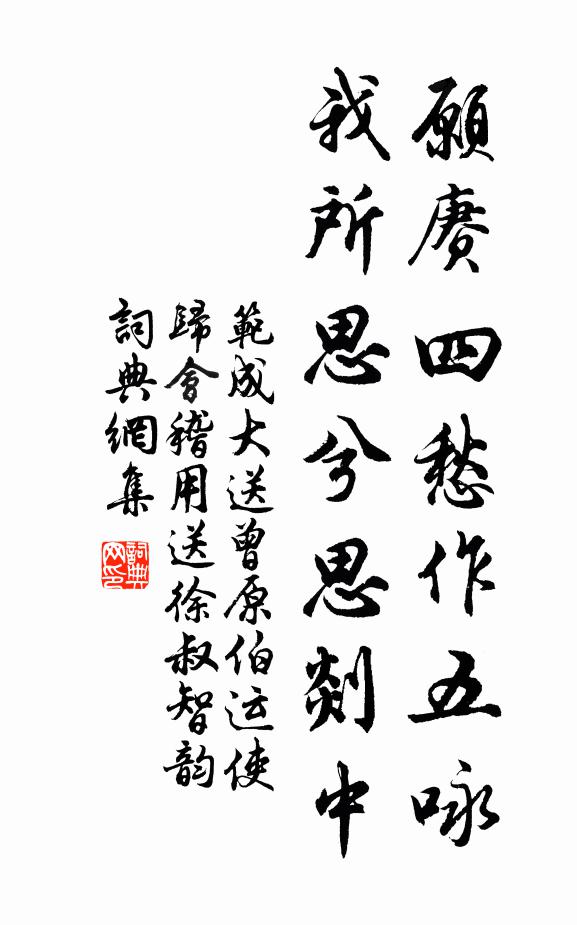 願赓四愁作五咏
我所思兮思剡中
範成大送曾原伯运使
歸會稽用送徐叔智韵
詞典網集
詞典网印